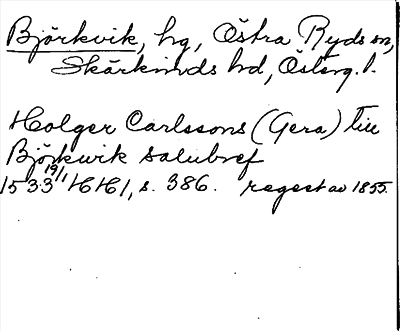 Björkvik, hg, Östra Ryds sn,
Skärkinds hd, Österg. l.
Holger Carlssons (Gera) till
Björkvik salubref
1533 19/1 HH1, s. 386. regest av 1855.